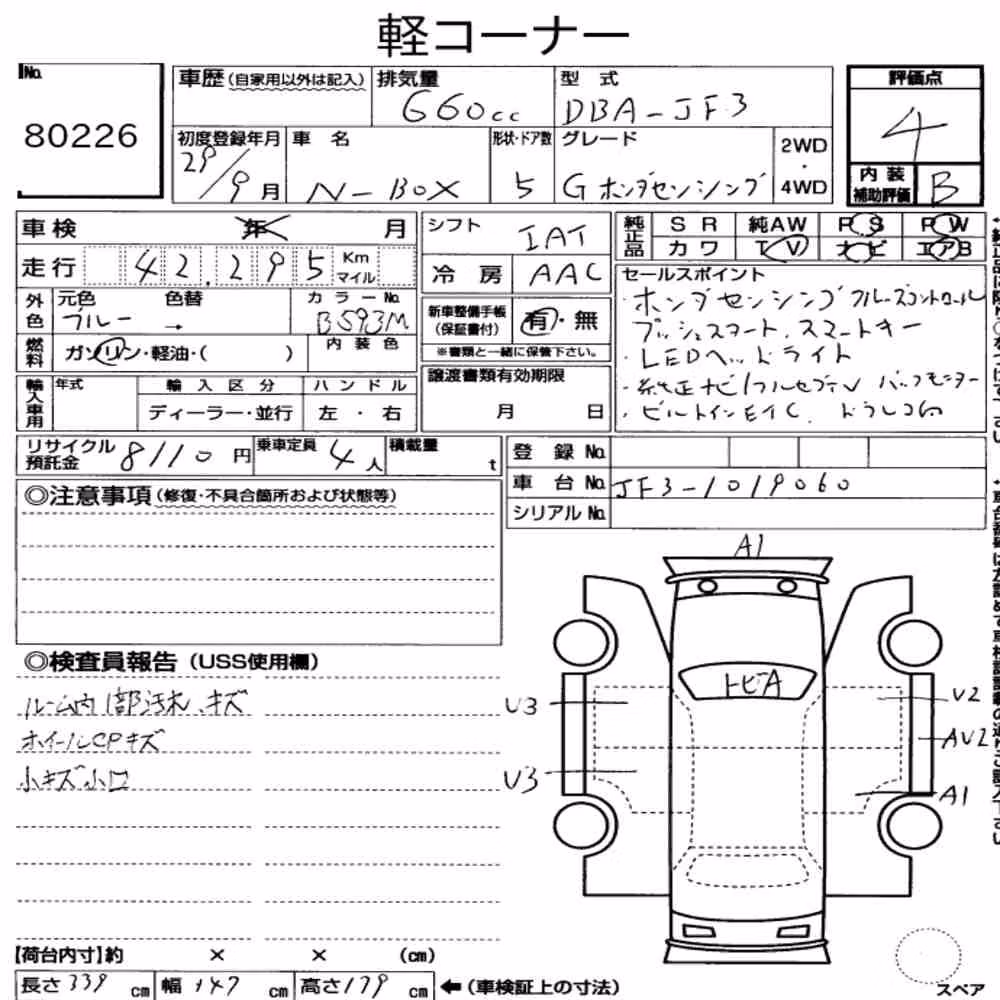 軽コーナー
No. 80226
車歴(自家用以外は記入)
排気量 660cc
型式 DBA-JF3
評価点 4
初度登録年月 29/9月
車名 N-BOX
形状・ドア数 5
グレード G ホンダセンシング
2WD・4WD
内装補助評価 B
車検 年 月
シフト IAT
純正品 SR 純AW PS PW
カワ TV ナビ エアB
走行 42,295 Km マイル
冷房 AAC
セールスポイント
・ホンダセンシング クルーズコントロール
プッシュスタート、スマートキー
・LEDヘッドライト
・純正ナビ/フルセグTV バックモニター
・ビルトインETC、ドラレコ
外色 元色 ブルー → 色替
カラーNo. B593M
新車整備手帳(保証書付) 有・無
※書類と一緒に保管下さい。
燃料 ガソリン・軽油・( )
内装色
譲渡書類有効期限
月 日
輸入車用 年式 輸入区分 ハンドル
ディーラー・並行 左・右
リサイクル預託金 8110円
乗車定員 4人
積載量 t
登録No.
車台No. JF3-1019060
シリアルNo.
◎注意事項(修復・不具合箇所および状態等)
◎検査員報告(USS使用欄)
ルーム内1部汚れ、キズ
ホイールCPキズ
小キズ小凹
A1
トビA
U3
U2
AU2
U3
A1
【荷台内寸】約 × × (cm)
長さ 339 cm 幅 147 cm 高さ 179 cm ←(車検証上の寸法)
スペア